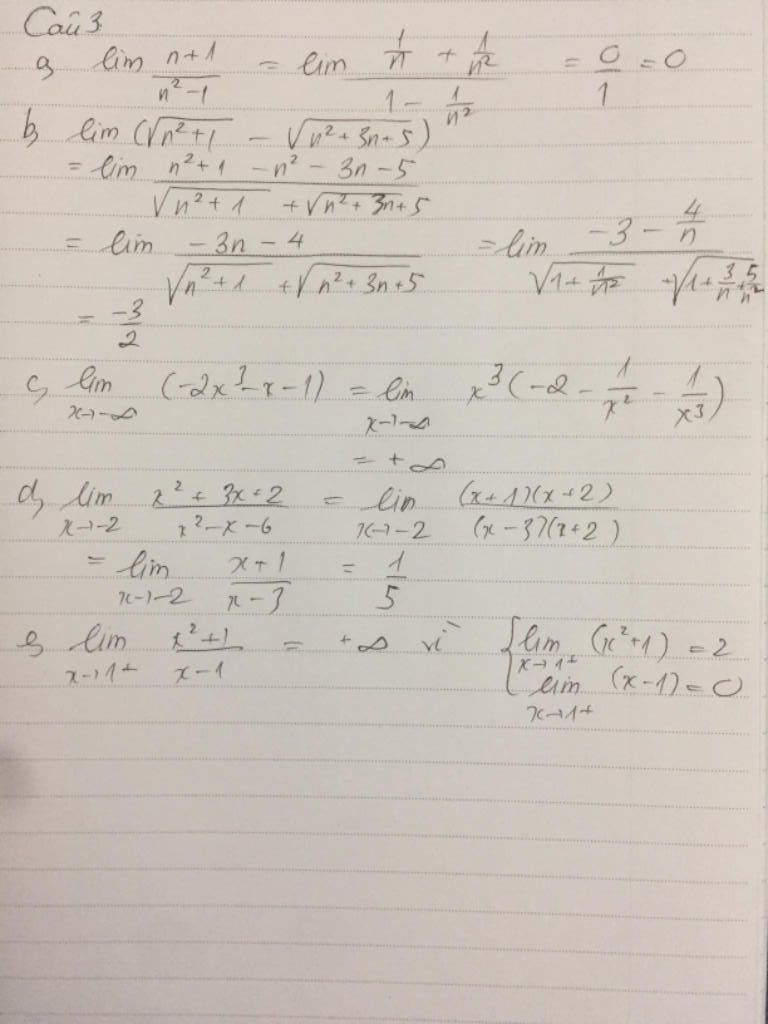 Câu 3
a, lim (n+1)/(n²-1) = lim (1/n + 1/n²)/(1 - 1/n²) = 0/1 = 0
b, lim (√(n²+1) - √(n²+3n+5))
= lim (n²+1 - n² - 3n - 5)/(√(n²+1) + √(n²+3n+5))
= lim (-3n - 4)/(√(n²+1) + √(n²+3n+5)) = lim (-3 - 4/n)/(√(1+1/n²) + √(1+3/n+5/n²))
= -3/2
c, lim x→-∞ (-2x³-x-1) = lim x→-∞ x³(-2 - 1/x² - 1/x³)
= +∞
d, lim x→-2 (x²+3x+2)/(x²-x-6) = lim x→-2 ((x+1)(x+2))/((x-3)(x+2))
= lim x→-2 (x+1)/(x-3) = 1/5
e, lim x→1+ (x²+1)/(x-1) = +∞ vì { lim x→1+ (x²+1) = 2
lim x→1+ (x-1) = 0